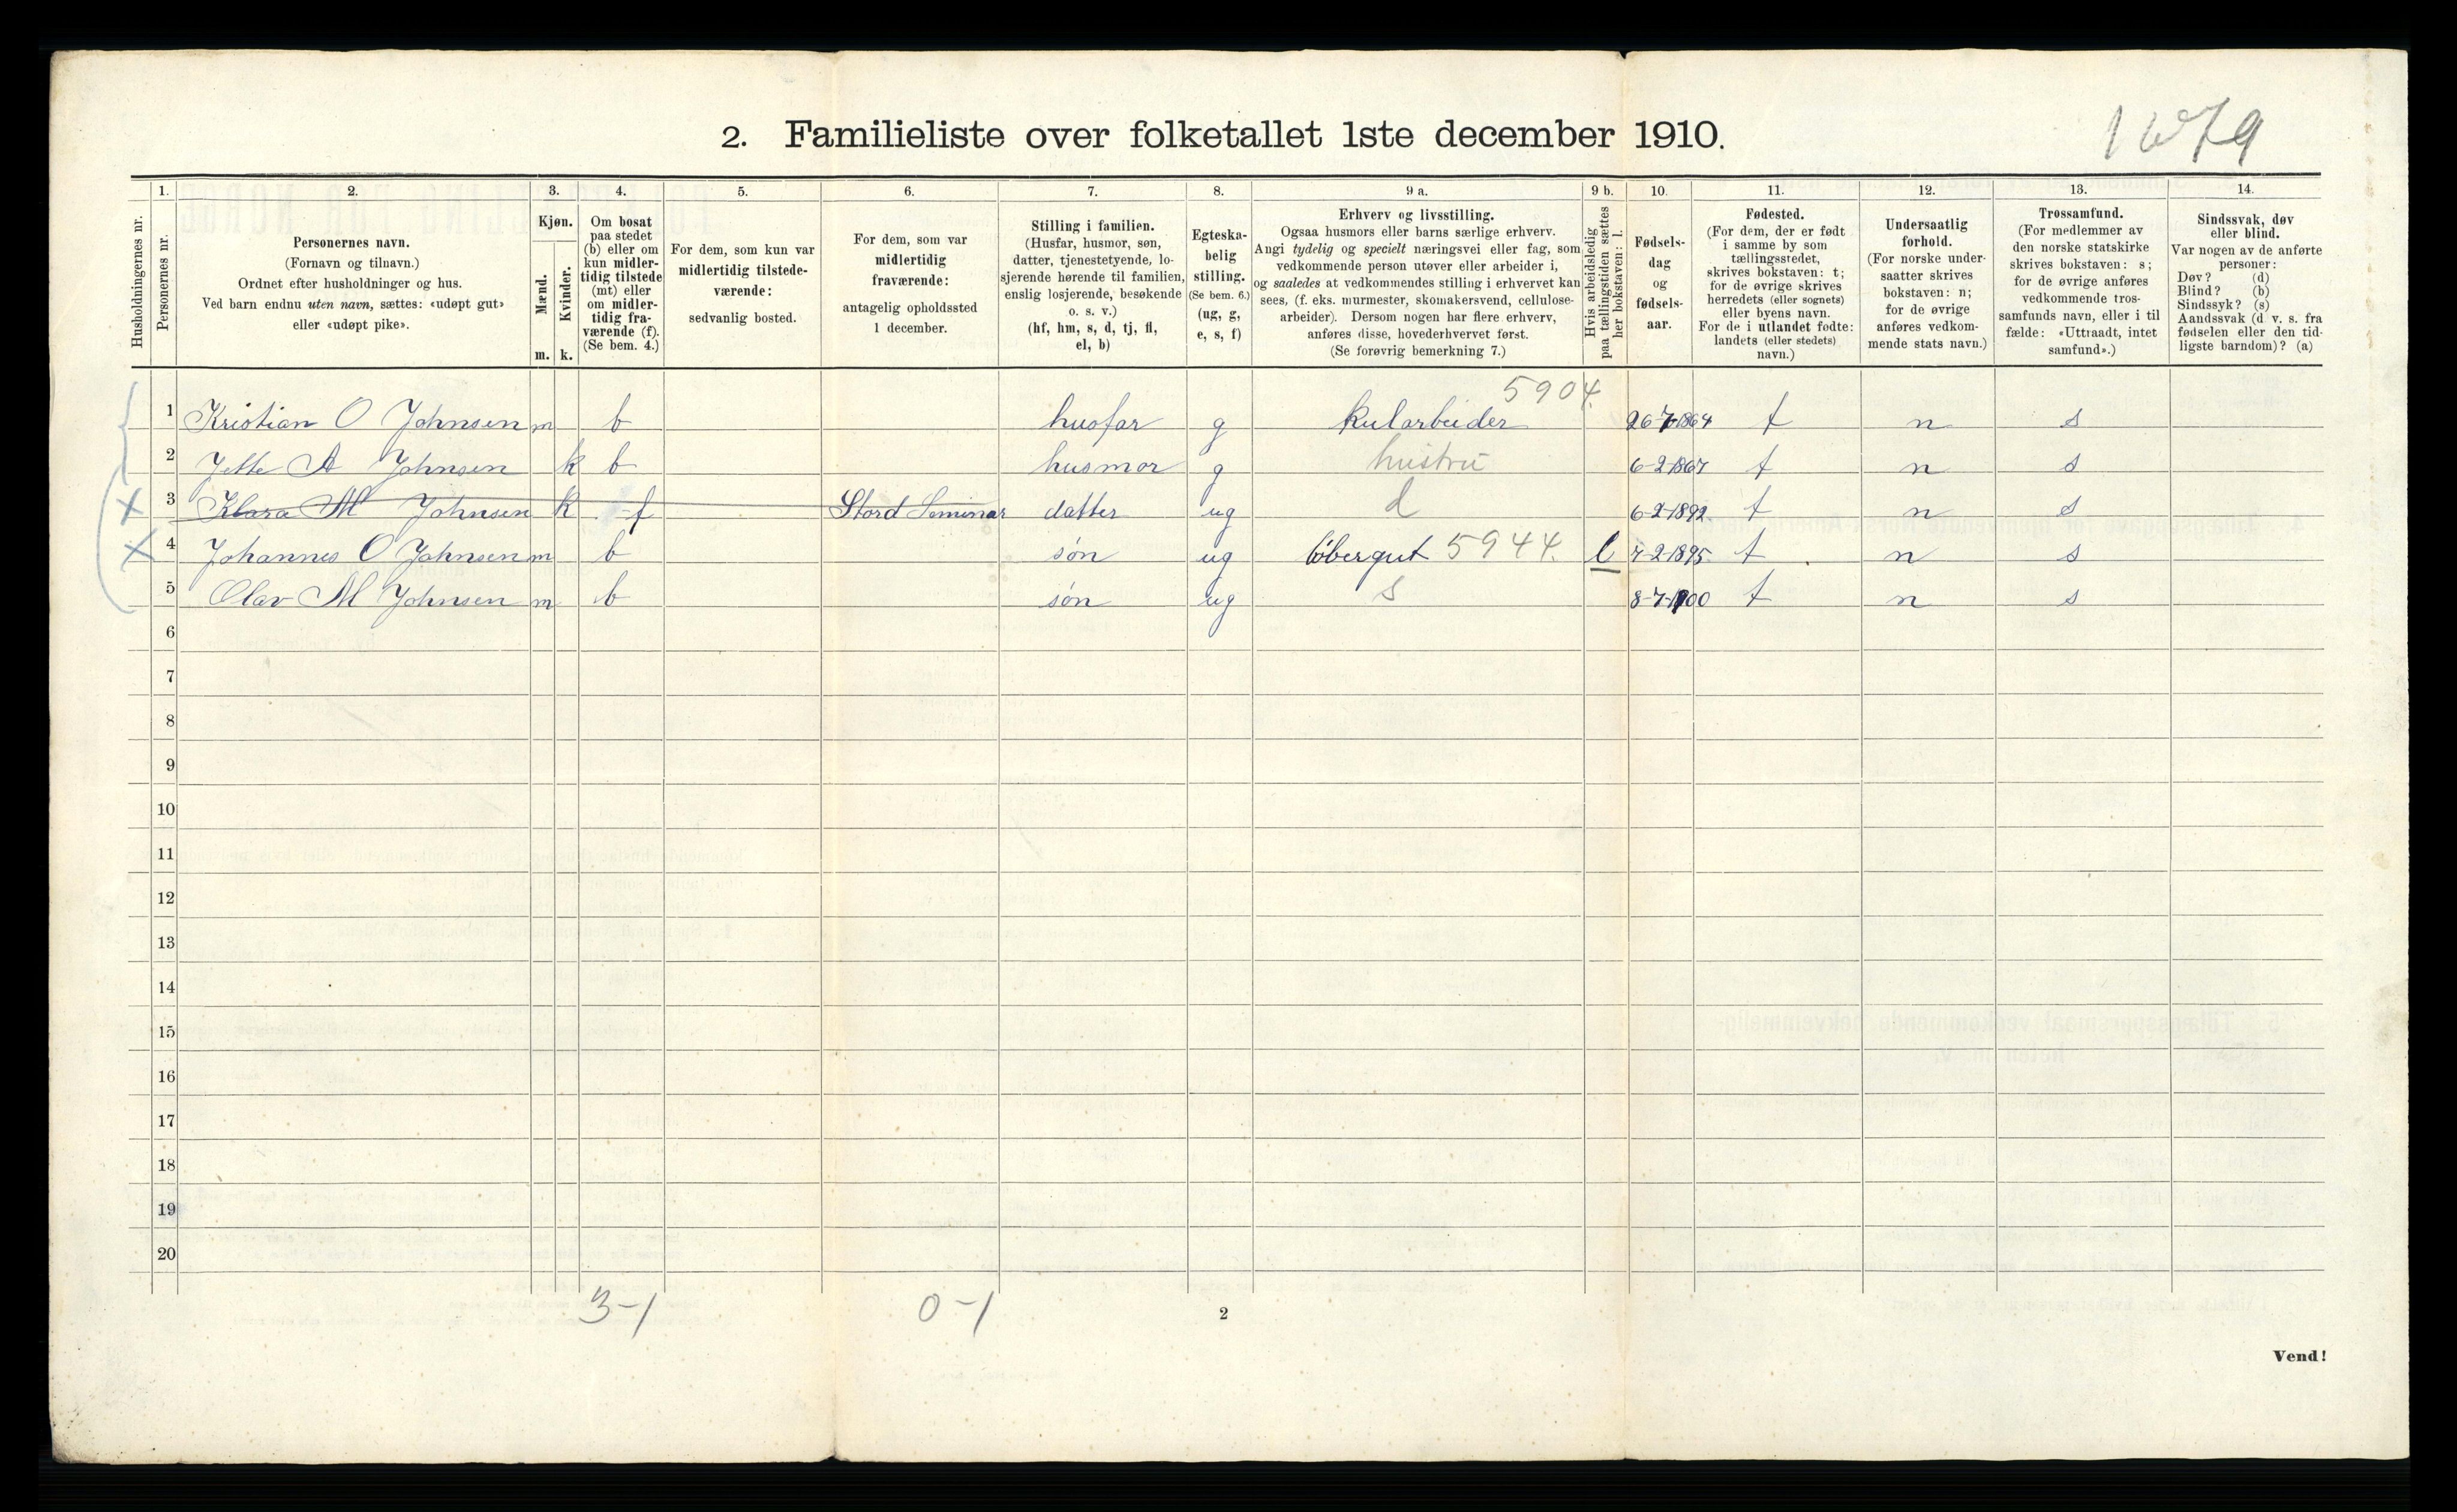 2. Familieliste over folketallet 1ste december 1910.
Husholdningernes nr.
1.
Personernes nr.
2.
Personernes navn.
(Fornavn og tilnavn.)
Ordnet efter husholdninger og hus.
Ved barn endnu uten navn, sættes: «udøpt gut»
eller «udøpt pike».
3.
Kjøn.
Mænd.
Kvinder.
m. k.
4.
Om bosat
paa stedet
(b) eller om
kun midler-
tidig tilstede
(mt) eller
om midler-
tidig fra-
værende (f).
(Se bem. 4.)
5.
For dem, som kun var
midlertidig tilstede-
værende:
sedvanlig bosted.
6.
For dem, som var
midlertidig
fraværende:
antagelig opholdssted
1 december.
7.
Stilling i familien.
(Husfar, husmor, søn,
datter, tjenestetyende, lo-
sjerende hørende til familien,
enslig losjerende, besøkende
o. s. v.)
(hf, hm, s, d, tj, fl,
el, b)
8.
Egteska-
belig
stilling.
(Se bem. 6.)
(ug, g,
e, s, f)
9 a.
Erhverv og livsstilling.
Ogsaa husmors eller barns særlige erhverv.
Angi tydelig og specielt næringsvei eller fag, som
vedkommende person utøver eller arbeider i,
og saaledes at vedkommendes stilling i erhvervet kan
sees, (f. eks. murmester, skomakersvend, cellulose-
arbeider). Dersom nogen har flere erhverv,
anføres disse, hovederhvervet først.
(Se forøvrig bemerkning 7.)
9 b.
Hvis arbeidsledig
paa tællingstiden sættes
her bokstaven: l.
10.
Fødsels-
dag
og
fødsels-
aar.
11.
Fødested.
(For dem, der er født
i samme by som
tællingsstedet,
skrives bokstaven: t;
for de øvrige skrives
herredets (eller sognets)
eller byens navn.
For de i utlandet fødte:
landets (eller stedets)
navn.)
12.
Undersaatlig
forhold.
(For norske under-
saatter skrives
bokstaven: n;
for de øvrige
anføres vedkom-
mende stats navn.)
13.
Trossamfund.
(For medlemmer av
den norske statskirke
skrives bokstaven: s;
for de øvrige anføres
vedkommende tros-
samfunds navn, eller i til
fælde: «Uttraadt, intet
samfund».)
14.
Sindssvak, døv
eller blind.
Var nogen av de anførte
personer:
Døv? (d)
Blind? (b)
Sindssyk? (s)
Aandssvak (d v. s. fra
fødselen eller den tid-
ligste barndom)? (a)
5904.
1 Kristian O Johnsen m b husfar g kularbeider 26-7-1864 t n s
2 Jette A Johnsen k b husmor g hustru 6-2-1867 t n s
3 Klara M Johnsen k f Stord Seminar datter ug d 6-2-1892 t n s
4 Johannes O Johnsen m b søn ug løbergut 5944. l 7-2-1895 t n s
5 Olav M Johnsen m b søn ug s 8-7-1900 t n s
6
7
8
9
10
11
12
13
14
15
16
17
18
19
20
3-1 0-1
2
Vend!